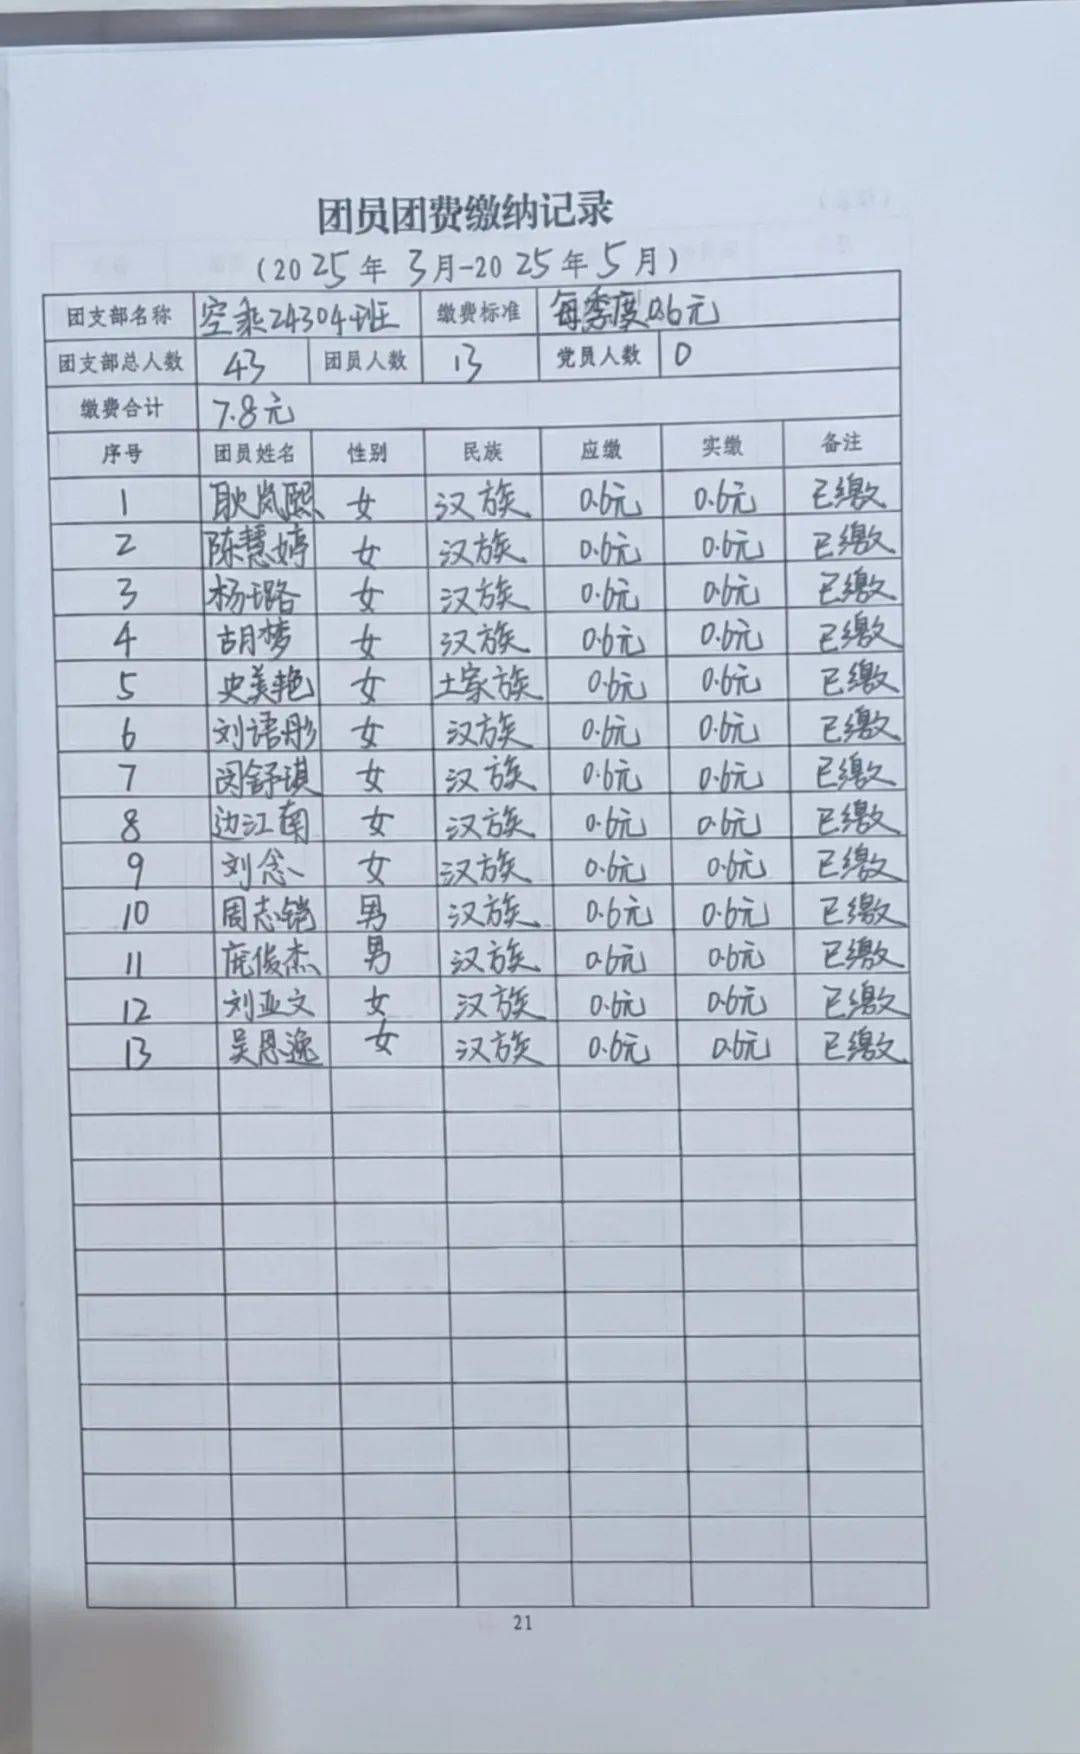 团员团费缴纳记录
(2025年3月-2025年5月)
团支部名称 空乘24304班 缴费标准 每季度0.6元
团支部总人数 43 团员人数 13 党员人数 0
缴费合计 7.8元
序号 团员姓名 性别 民族 应缴 实缴 备注
1 耿岚熙 女 汉族 0.6元 0.6元 已缴
2 陈慧婷 女 汉族 0.6元 0.6元 已缴
3 杨璐 女 汉族 0.6元 0.6元 已缴
4 胡梦 女 汉族 0.6元 0.6元 已缴
5 史美艳 女 土家族 0.6元 0.6元 已缴
6 刘语彤 女 汉族 0.6元 0.6元 已缴
7 闵舒琪 女 汉族 0.6元 0.6元 已缴
8 边江南 女 汉族 0.6元 0.6元 已缴
9 刘念 女 汉族 0.6元 0.6元 已缴
10 周志铠 男 汉族 0.6元 0.6元 已缴
11 庞俊杰 男 汉族 0.6元 0.6元 已缴
12 刘亚文 女 汉族 0.6元 0.6元 已缴
13 吴恩逸 女 汉族 0.6元 0.6元 已缴
21